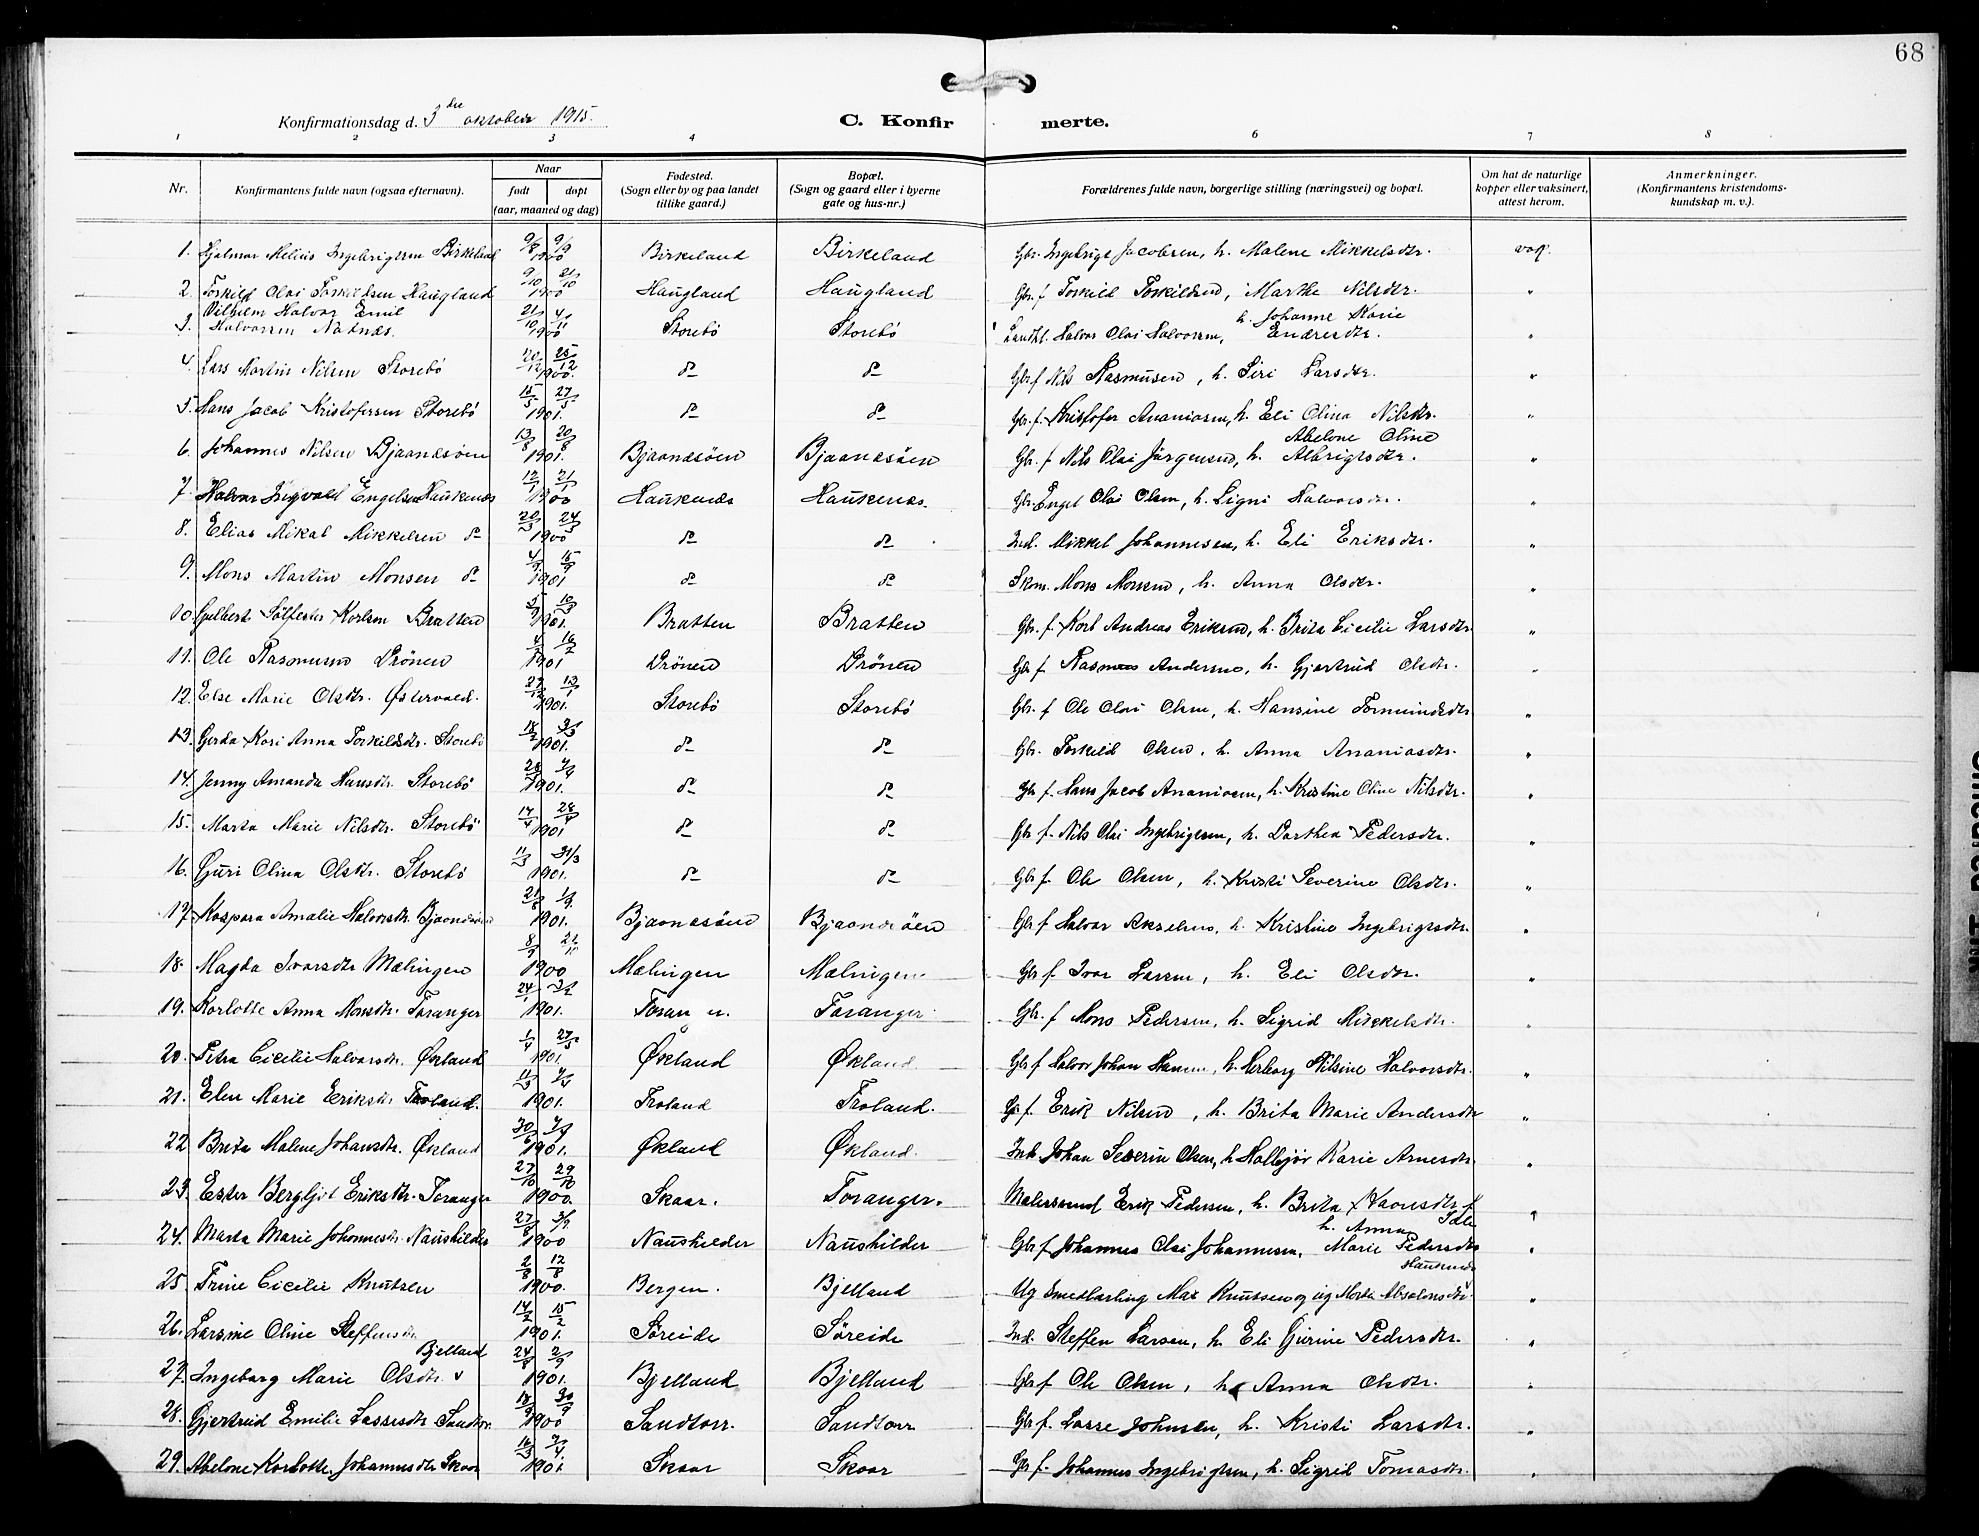 68
Konfirmationsdag d. 3die oktober 1915.
C. Konfirmerte.
1 2 3 4 6 7 8
Nr. Konfirmantens fulde navn (ogsaa efternavn). Naar født døpt (aar, maaned og dag) Fødested. (Sogn eller by og paa landet tillike gaard.) Bopæl. (Sogn og gaard eller i byerne gate og hus-nr.) Forældrenes fulde navn, borgerlige stilling (næringsvei) og bopæl. Om hat de naturlige kopper eller vaksinert, attest herom. Anmerkninger. (Konfirmantens kristendoms-kundskap m. v.).
1. Hjalmar Melius Ingebrigtsen Birkeland 9/8 9/9 1900 Birkeland Birkeland Gbr. Ingebrigt Jacobsen, h. Malene Mikkelsdtr. vaq.
2. Torkild Olai Torkildsen Haugland 9/10 21/10 1900 Haugland Haugland Gbr. f Torkild Torkildsen, Marthe Nilsdtr. "
3. Vilhelm Halvor Emil Halvorsen Natnæs. 21/10 4/11 1900 Storebø Storebø Halvor Olai Halvorsen, h. Johanne Karie Endresdtr. "
4. Lars Martin Nilsen Storebø 20/12 25/12 1900. do do Gbr f Nils Rasmusen, h. Siri Larsdtr. "
5. Hans Jacob Kristofersen Storebø 15/5 27/5 1901. do do Gbr. f. Kristofer Ananiasen, h. Eli Olina Nilsdtr. "
6. Johannes Nilsen Bjaanæsøen 13/8 20/8 1901. Bjaanæsøen Bjaanæsøen Gbr. f Nils Olai Jørgensen, h. Abelone Oline Albrigtsdtr. "
7. Halvor Ingvald Engelsen Haukenæs 12/1 21/1 1900 Haukenæs Haukenæs. Gbr. Engel Olai Olsen, h. Signi Halvorsdtr. "
8. Elias Mikal Mikkelsen do 20/3 24/3 1900 do do Ind. Mikkel Johannesen, h. Eli Eriksdtr. "
9. Mons Martin Monsen do 4/9 15/9 1901 do do Skom. Mons Monsen, h. Anna Olsdtr. "
10. Gjelbert Sølfester Korlsen Bratten 1901. Bratten Bratten Gbr. f. Korl Andreas Eriksen, h. Brita Cicilie Larsdtr "
11. Ole Rasmusen Drönen 1901 Drönen Drönen Gbr f Rasmus Andersen, h. Gjertrud Olsdtr. "
12. Else Marie Olsdtr. Østervold. 1901. Storebø Storebø Gbr. f Ole Olai Olsen, h. Hansine Tormundsdtr "
13. Gerda Kari Anna Torkildsdtr. Storebø 1901. do do Gbr. Torkild Olsen, h. Anna Ananiasdtr. "
14. Jenny Amanda Hansdtr. Storebø 1901. do do Gbr f. Hans Jacob Ananiasen, h. Kristine Oline Nilsdtr. "
15. Marta Marie Nilsdtr. Storebø 14/4 28/4 1901 do do Gbr f. Nils Olai Ingebrigtsen, h. Dorthea Pedersdtr. "
16. Guri Olina Olsdtr. Storebø 11/3 31/3 1901. do do Gbr f. Ole Olsen, h. Kristi Severine Olsdtr. "
17. Kaspara Amalie Halvorsdtr. Bjaanæsøen 21/8 1/9. 1901. Bjaanæsøen Bjaanæsøen Gbr f Halvor Akselsen, h. Kristine Ingebrigtsdtr. "
18. Magda Ivarsdtr Mælingen 1900 Mælingen Mælingen Gbr f. Ivar Larsen, h. Eli Olsdtr. "
19. Korlotte Anna Monsdtr. Toranger 1901. Toranger Gbr. f Mons Pedersen, h. Sigrid Mikkelsdtr. "
20. Petra Cicilie Halvorsdtr. Økland 1/4 27/5 1901. Økland Økland Gbr f Halvor Johan Hansen, h. Herborg Nilsine Halvorsdtr. "
21. Elen Marie Eriksdtr. Troland. 1901. Troland Troland. f. Erik Nilsen, h. Brita Marie Andersdtr "
22. Brita Malene Johansdtr. Økland 1901. Økland Økland. Ind. Johan Severin Olsen, h. Halbjør Karie Arnesdtr. "
23. Ester Bergljot Eriksdtr. Toranger 27/10 29/10 1900. Skaar. Toranger. Malersvend Erik Pedersen, h. Brita "
24. Marta Marie Johannesdtr. Naushilder 1900 Naushilder Naushilder Gbr f Johannes Olai Johannesen, h. Anna Marie Pedersdtr "
25. Trine Cicilie Knutsen 2/8 12/8 1900. Bergen. Bjelland Ug Smedlærling Max Knutsen og ug Marta Absalonsdtr. Haukenæs "
26. Larsine Oline Steffensdtr 14/2 15/2 1901. Søreide Søreide Ind. Steffen Larsen, h. Eli Gurine Pedersdtr. "
27. Ingeborg Marie Olsdtr. Bjelland 24/8 2/9 1901. Bjelland Bjelland Gbr f Ole Olsen, h. Anna Olsdtr. "
28. Gjertrud Emilie Lassesdtr Sandtorr. 1900 Sandtorr. Sandtorr Gbr f. Lasse Johnsen, h. Kristi Larsdtr. "
29. Abelone Korlotte Johannesdtr Skaar 1901 Skaar Skaar Gbr f. Johannes Ingebrigtsen, h. Sigrid Tomasdtr. "